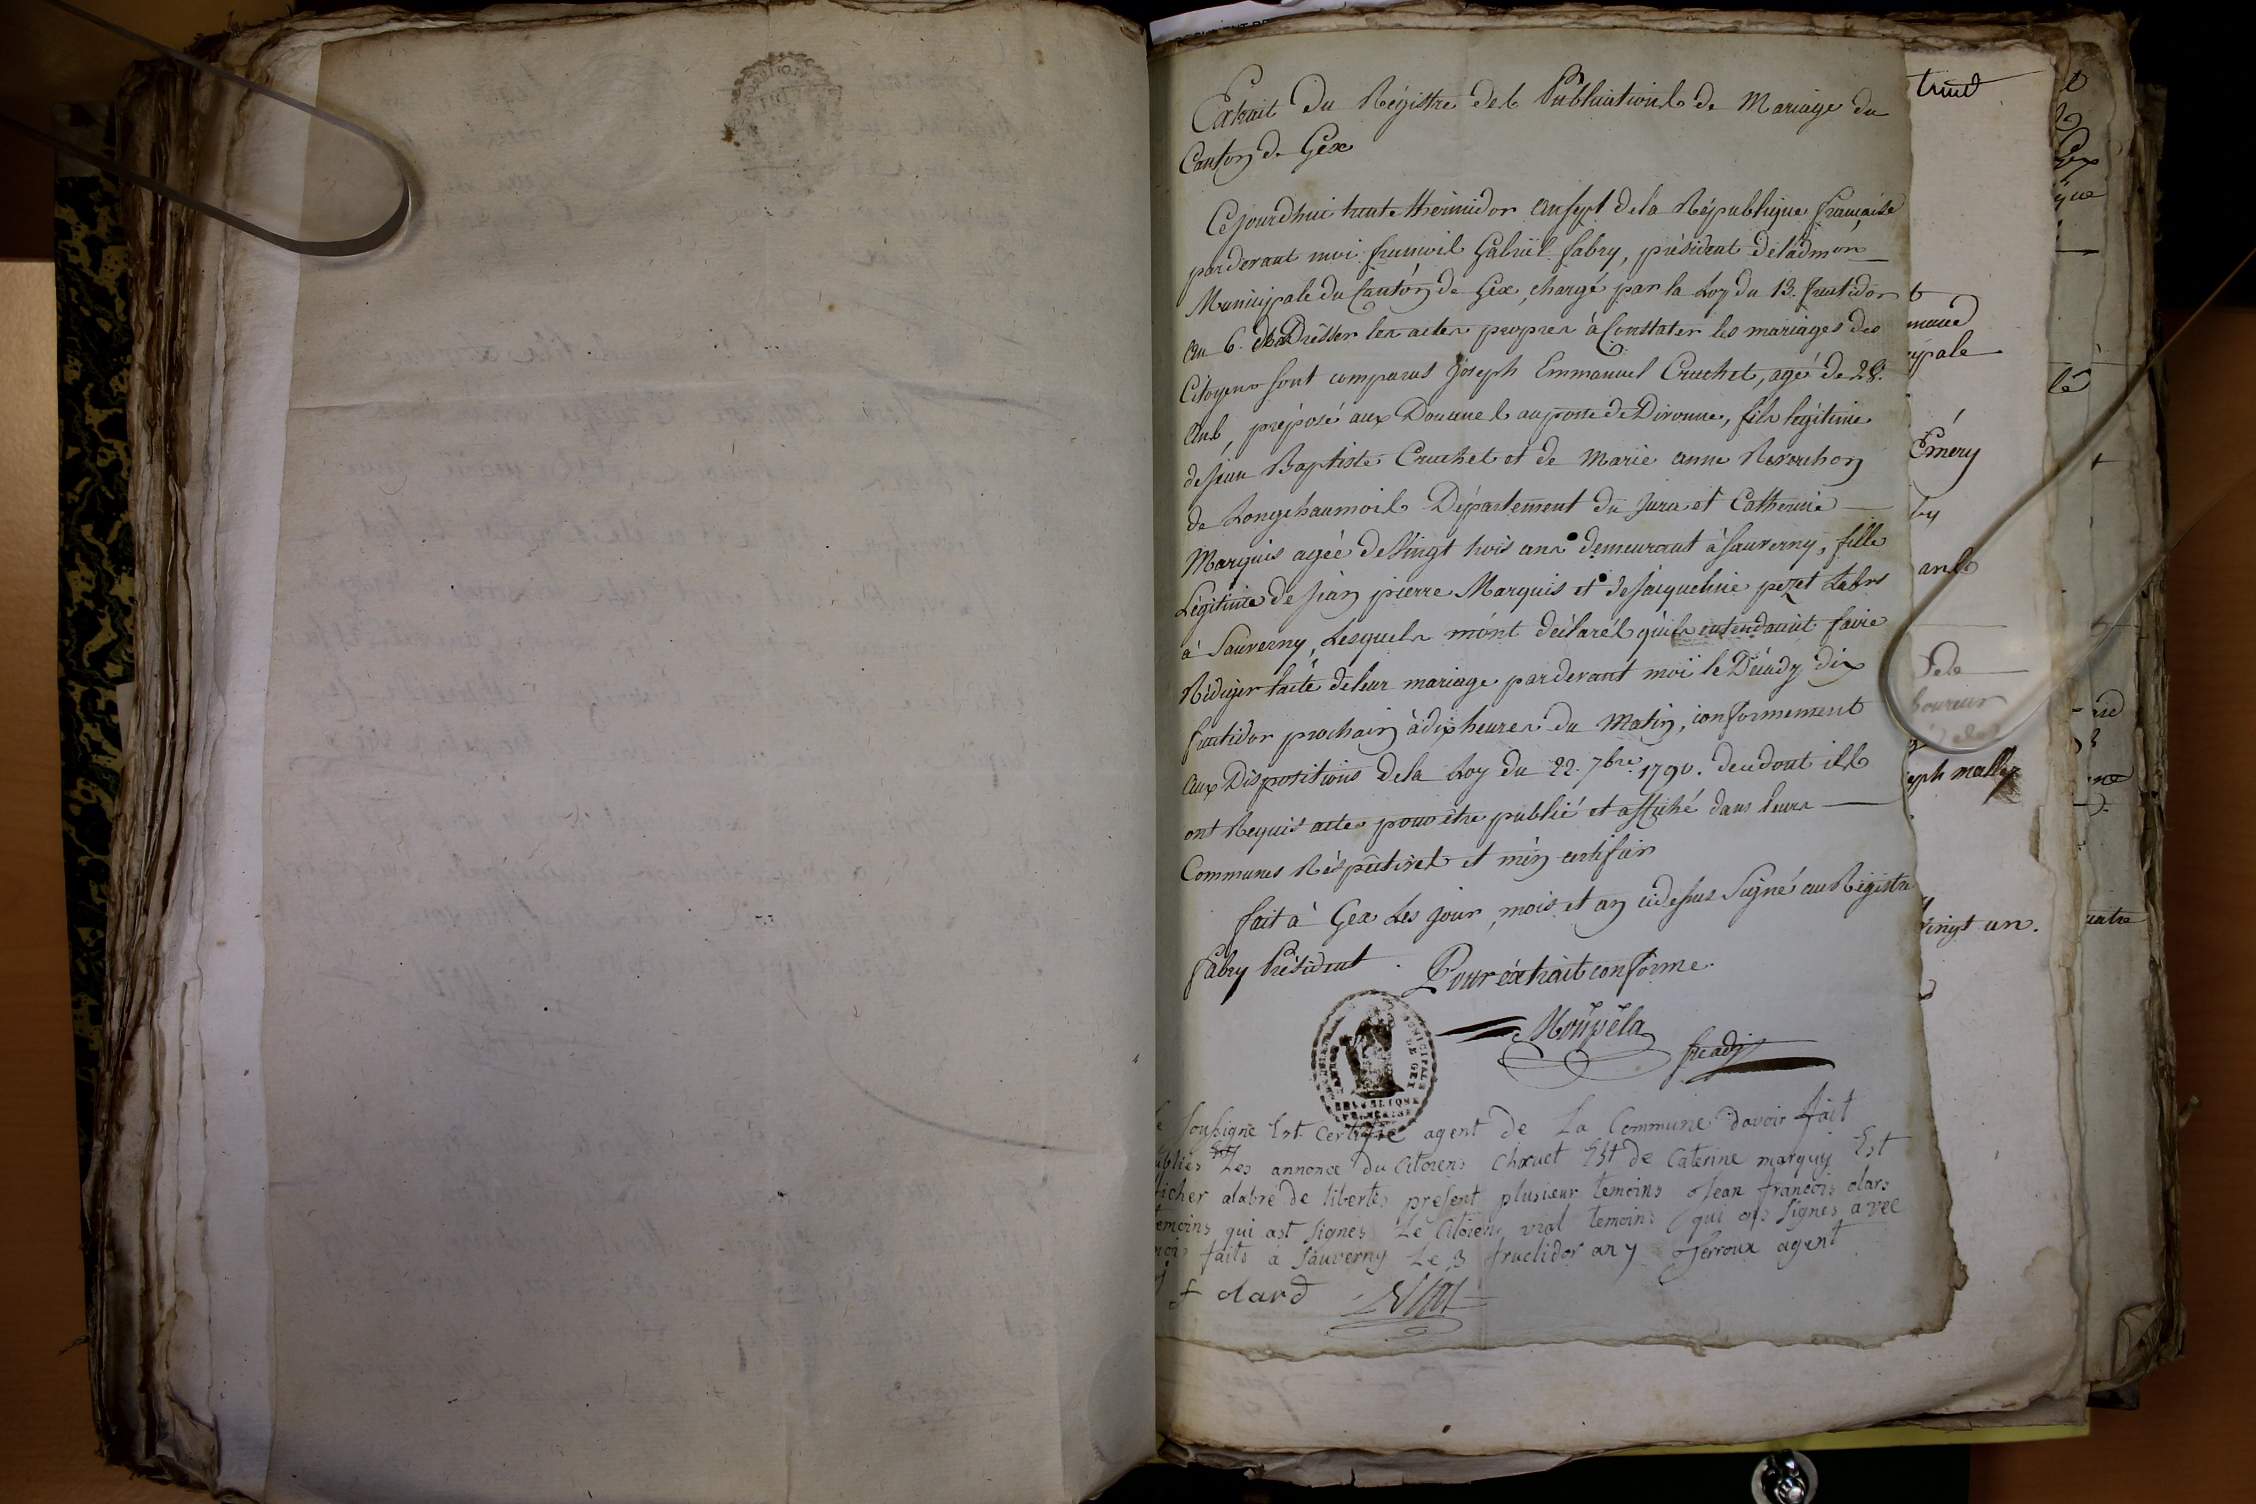 Extrait du Régistre des Publications de Mariage du
Canton de Gex
Cejourdhui trente thermidor an sept de la République française
pardevant moi françois Gabriël fabry, président deladmon
Municipale du Canton de Gex, chargé par la Loy du 13. fructidor
an 6. de Dresser les actes propres à Constater les mariages des
Citoyens sont comparus Joseph Emmanuel Cruchet, agé de 28.
ans, préposé aux Douanes au poste de Divonne, fils légitime
de jean Baptiste Cruchet et de Marie anne Reverchon
de Longchaumois Département du Jura et Catherine
Marquis agée de Vingt trois ans demeurant à Sauverny, fille
Légitime de jean pierre Marquis et de Jacqueline pezet Labrs
à Sauverny, Lesquels m'ont déclarés qu'ils entendaient faire
Rédiger l'acte de leur mariage pardevant moi le Décady dix
fructidor prochain à dix heures du Matin, conformement
aux Dispositions de la Loy du 22. 7bre 1790. de ce dont ils
ont Requis acte pour être publié et affiché dans leurs
Communes Réspectives et m'en certifier
fait à Gex Les jour, mois et an cidessus Signé au Régistre
fabry Président . Pour éxtrait conforme.
MUNICIPALE DE GEX
REPUBLIQUE
FRANCAISE
Soussigne Est certifie agent de La Commune davoir fait
ublier Les annonce du Citoiens Chruet Est de Caterine marquis Est
ficher alabre de libertés présent plusieur temoins Jean francois olars
temoins qui ast signes Le Citoiens vial temoins qui ons signes avec
moi faits à Sauverny Le 3 fructidor an 7 Perroux agent
j f olard Vial
trud
maued
ipale
Emery
by
ans
Fele
boureur
eph mallez
vingt un.
uatre